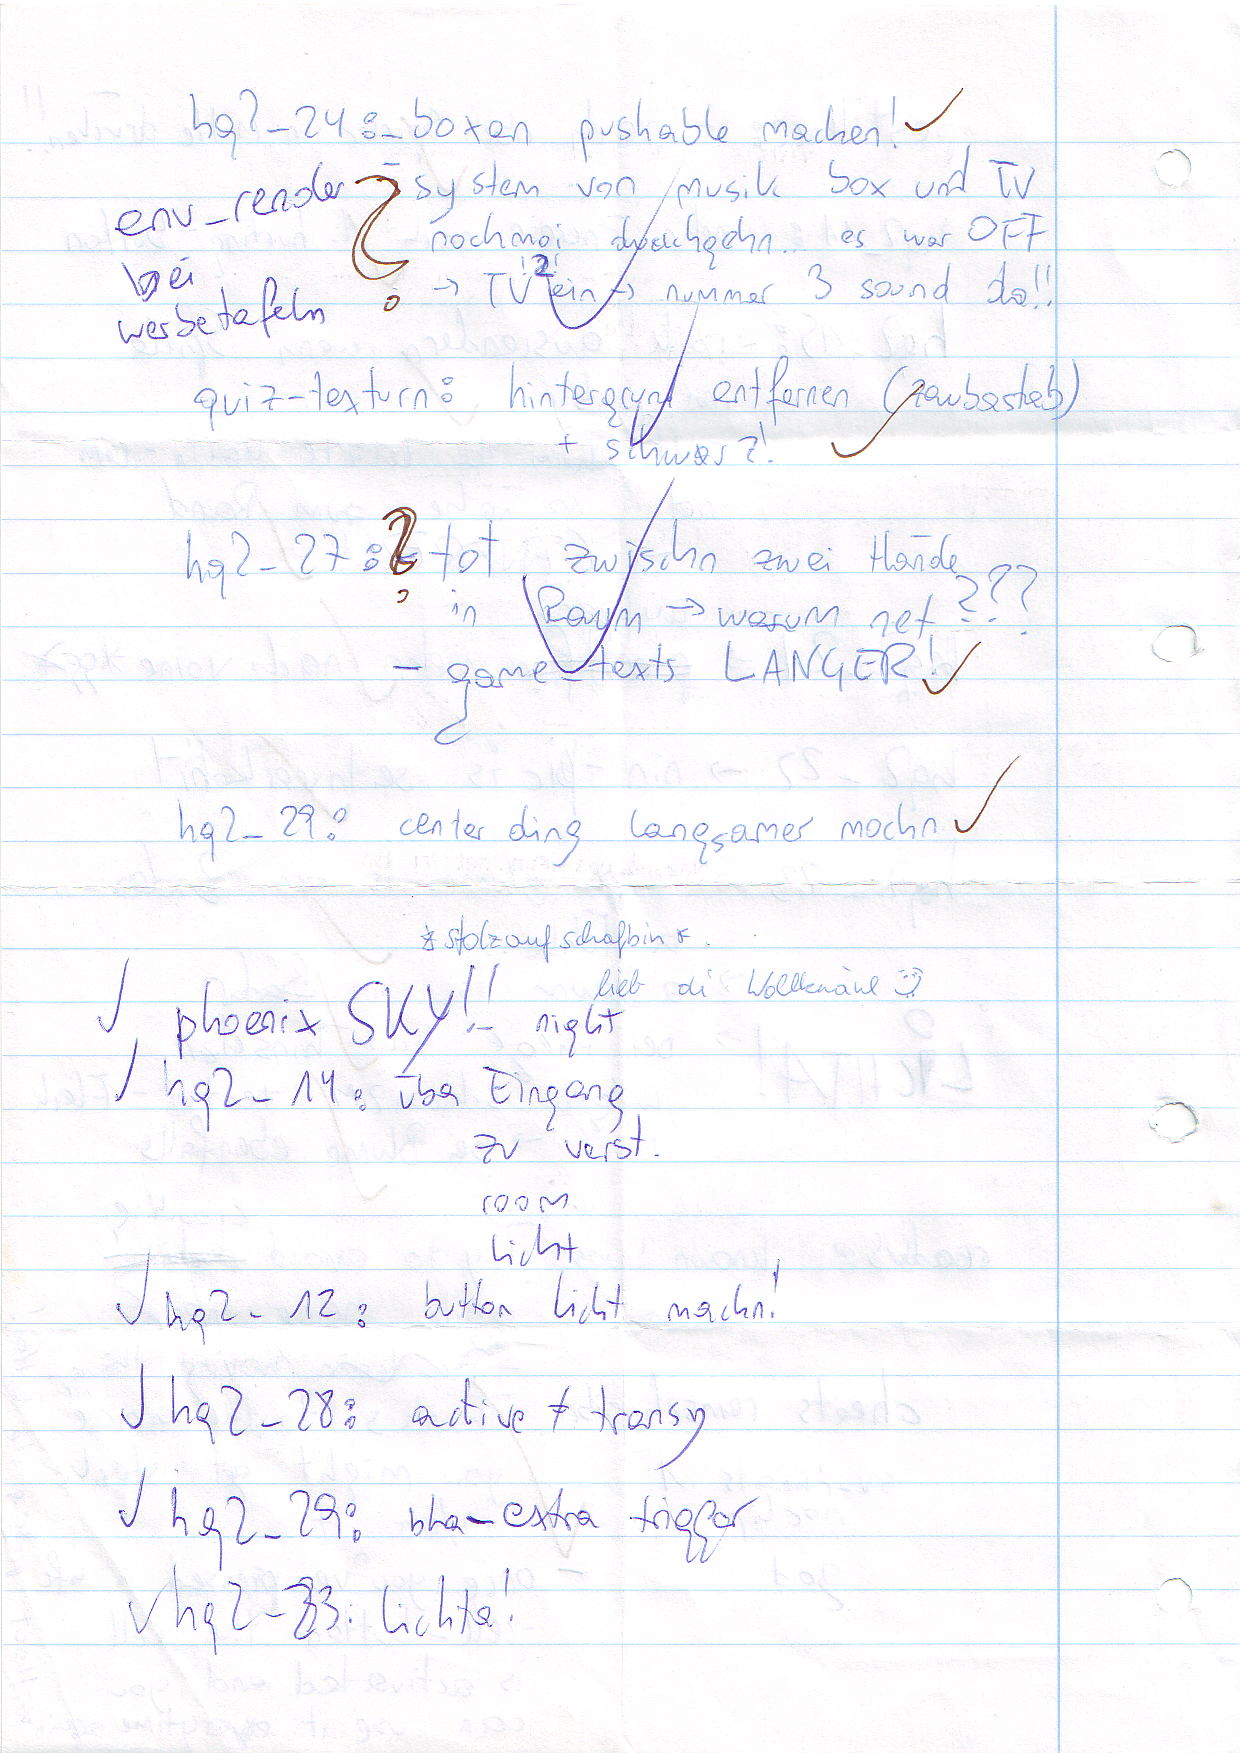 hq2_24: - boxen pushable machen! ✓
env_render
bei
werbetafeln
- system von musik box und TV
nochmoi durchgehn.. es war OFF
→ TV 2 ein → nummer 3 sound da!!
quiz-texturn: hintergrund entfernen (zaubastab)
+ schwarz! ✓
hq2_27: - tot zwischn zwei Hände
in Raum → warum net???
- game_texts LÄNGER! ✓
hq2_29: center ding langsamer mochn ✓
*stolzaufschafbin*.
lieb di Wollknäul
✓ phoenix SKY!! night
✓ hq2_14: üba Eingang
zu verst.
room
licht
✓ hq2_12: button licht machn!
✓ hq2_28: active ≠
✓ hq2_29: -extra trigger
✓ hq2_23: lichta!